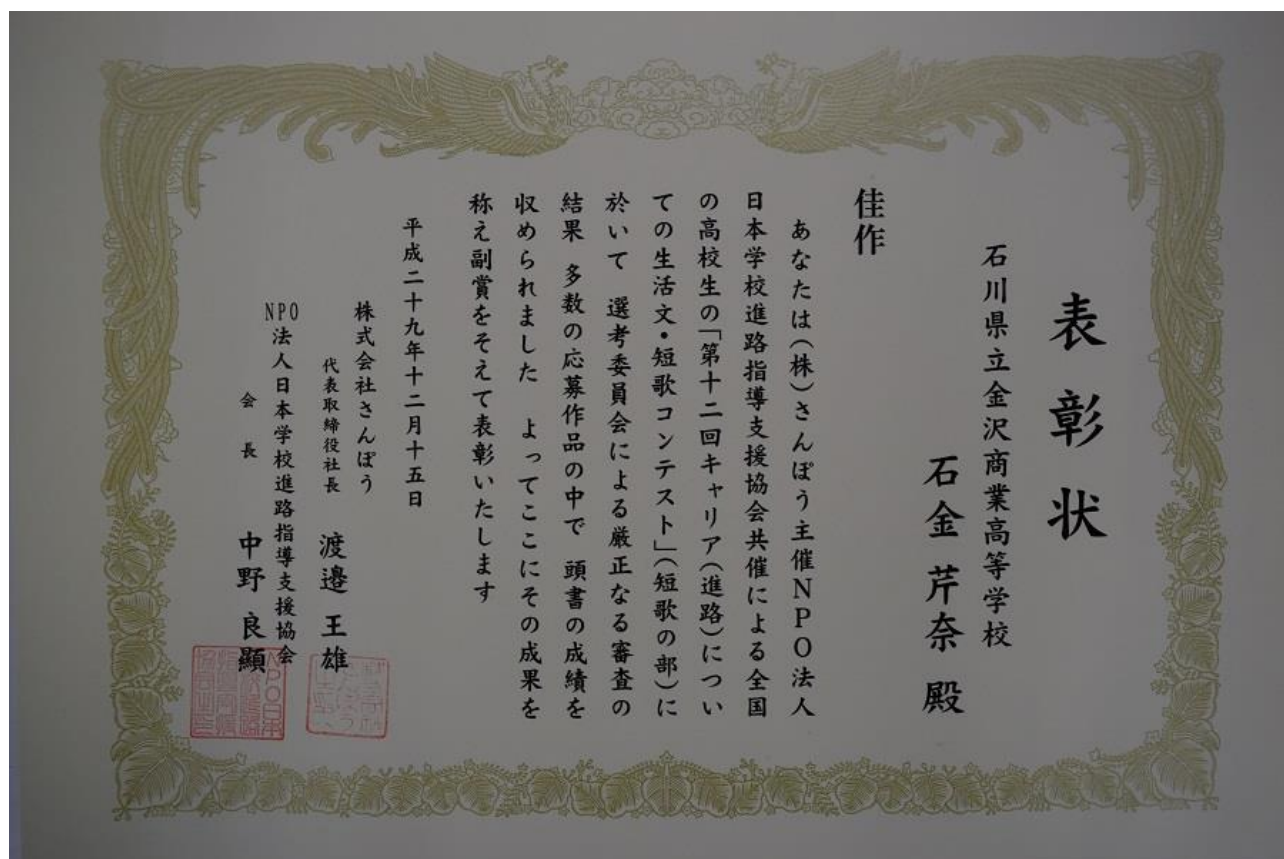 表彰状
石川県立金沢商業高等学校
石金 芹奈 殿
佳作
あなたは(株)さんぽう主催NPO法人
日本学校進路指導支援協会共催による全国
の高校生の「第十二回キャリア(進路)につい
ての生活文・短歌コンテスト」(短歌の部)に
於いて 選考委員会による厳正なる審査の
結果 多数の応募作品の中で 頭書の成績を
収められました よってここにその成果を
称え副賞をそえて表彰いたします
平成二十九年十二月十五日
株式会社さんぽう
代表取締役社長 渡邉 王雄
NPO法人日本学校進路指導支援協会
会長 中野 良顯